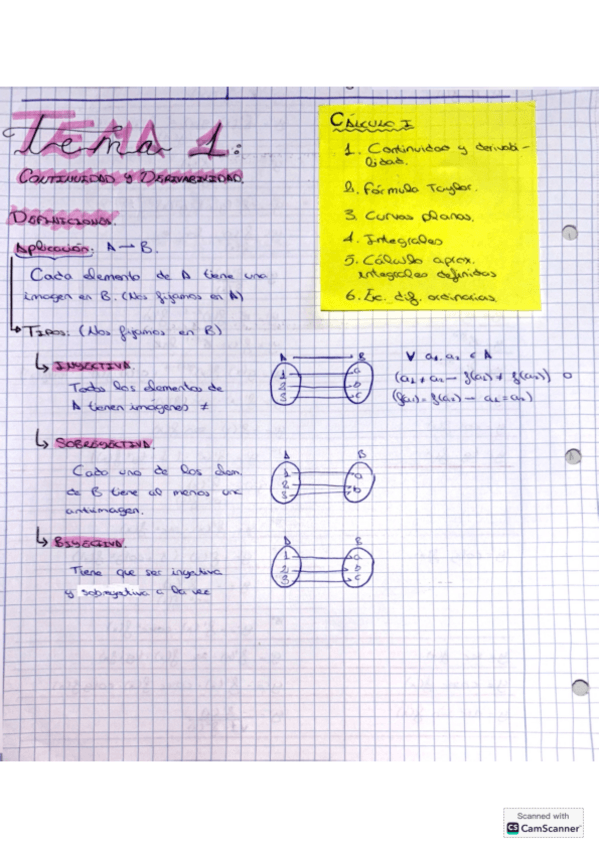 Tema 1:
CONTINUIDAD y DERIVABILIDAD.
DEFINICIONES.
Aplicación: A → B.
Cada elemento de A tiene una
imagen en B. (Nos fijamos en A)
TIPOS: (Nos fijamos en B)
INYECTIVA.
Todos los elementos de
A tienen imágenes ≠
A B
1 a
2 b
3 c
∀ a₁, a₂ ∈ A
(a₁ ≠ a₂ → f(a₁) ≠ f(a₂)) o
(f(a₁) = f(a₂) → a₁ = a₂)
SOBREYECTIVA.
Cada uno de los elem.
de B tiene al menos una
antiimagen.
A B
1 a
2 b
3
BIYECTIVA.
Tiene que ser inyectiva
y sobreyetiva a la vez
A B
1 a
2 b
3 c
CÁLCULO I
1. Continuidad y derivabi-
lidad.
2. Fórmula Taylor.
3. Curvas planas.
4. Integrales
5. Cálculo aprox.
integrales definidas
6. Ec. dif. ordinarias.
Scanned with
CS CamScanner